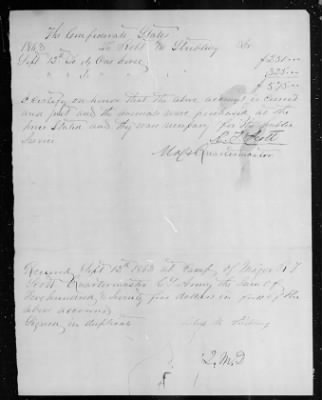 The Confederate States
1863 To Robt M Stribling Dr
Sept 12th To One horse $250.00
" " " " 325.00
$575.00
I certify on honor that the above account is correct
and just and the animals were purchased at the
price stated and they were necessary for the public
service
Scott
Maj & Quartermaster
Received Sept 12th 1863 at Camp of Major
Scott Quartermaster C S Army the sum of
five hundred & seventy five dollars in full of the
above account
Signed in duplicate